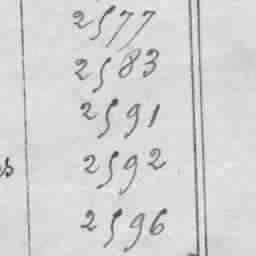 2577
2583
2591
2592
2596